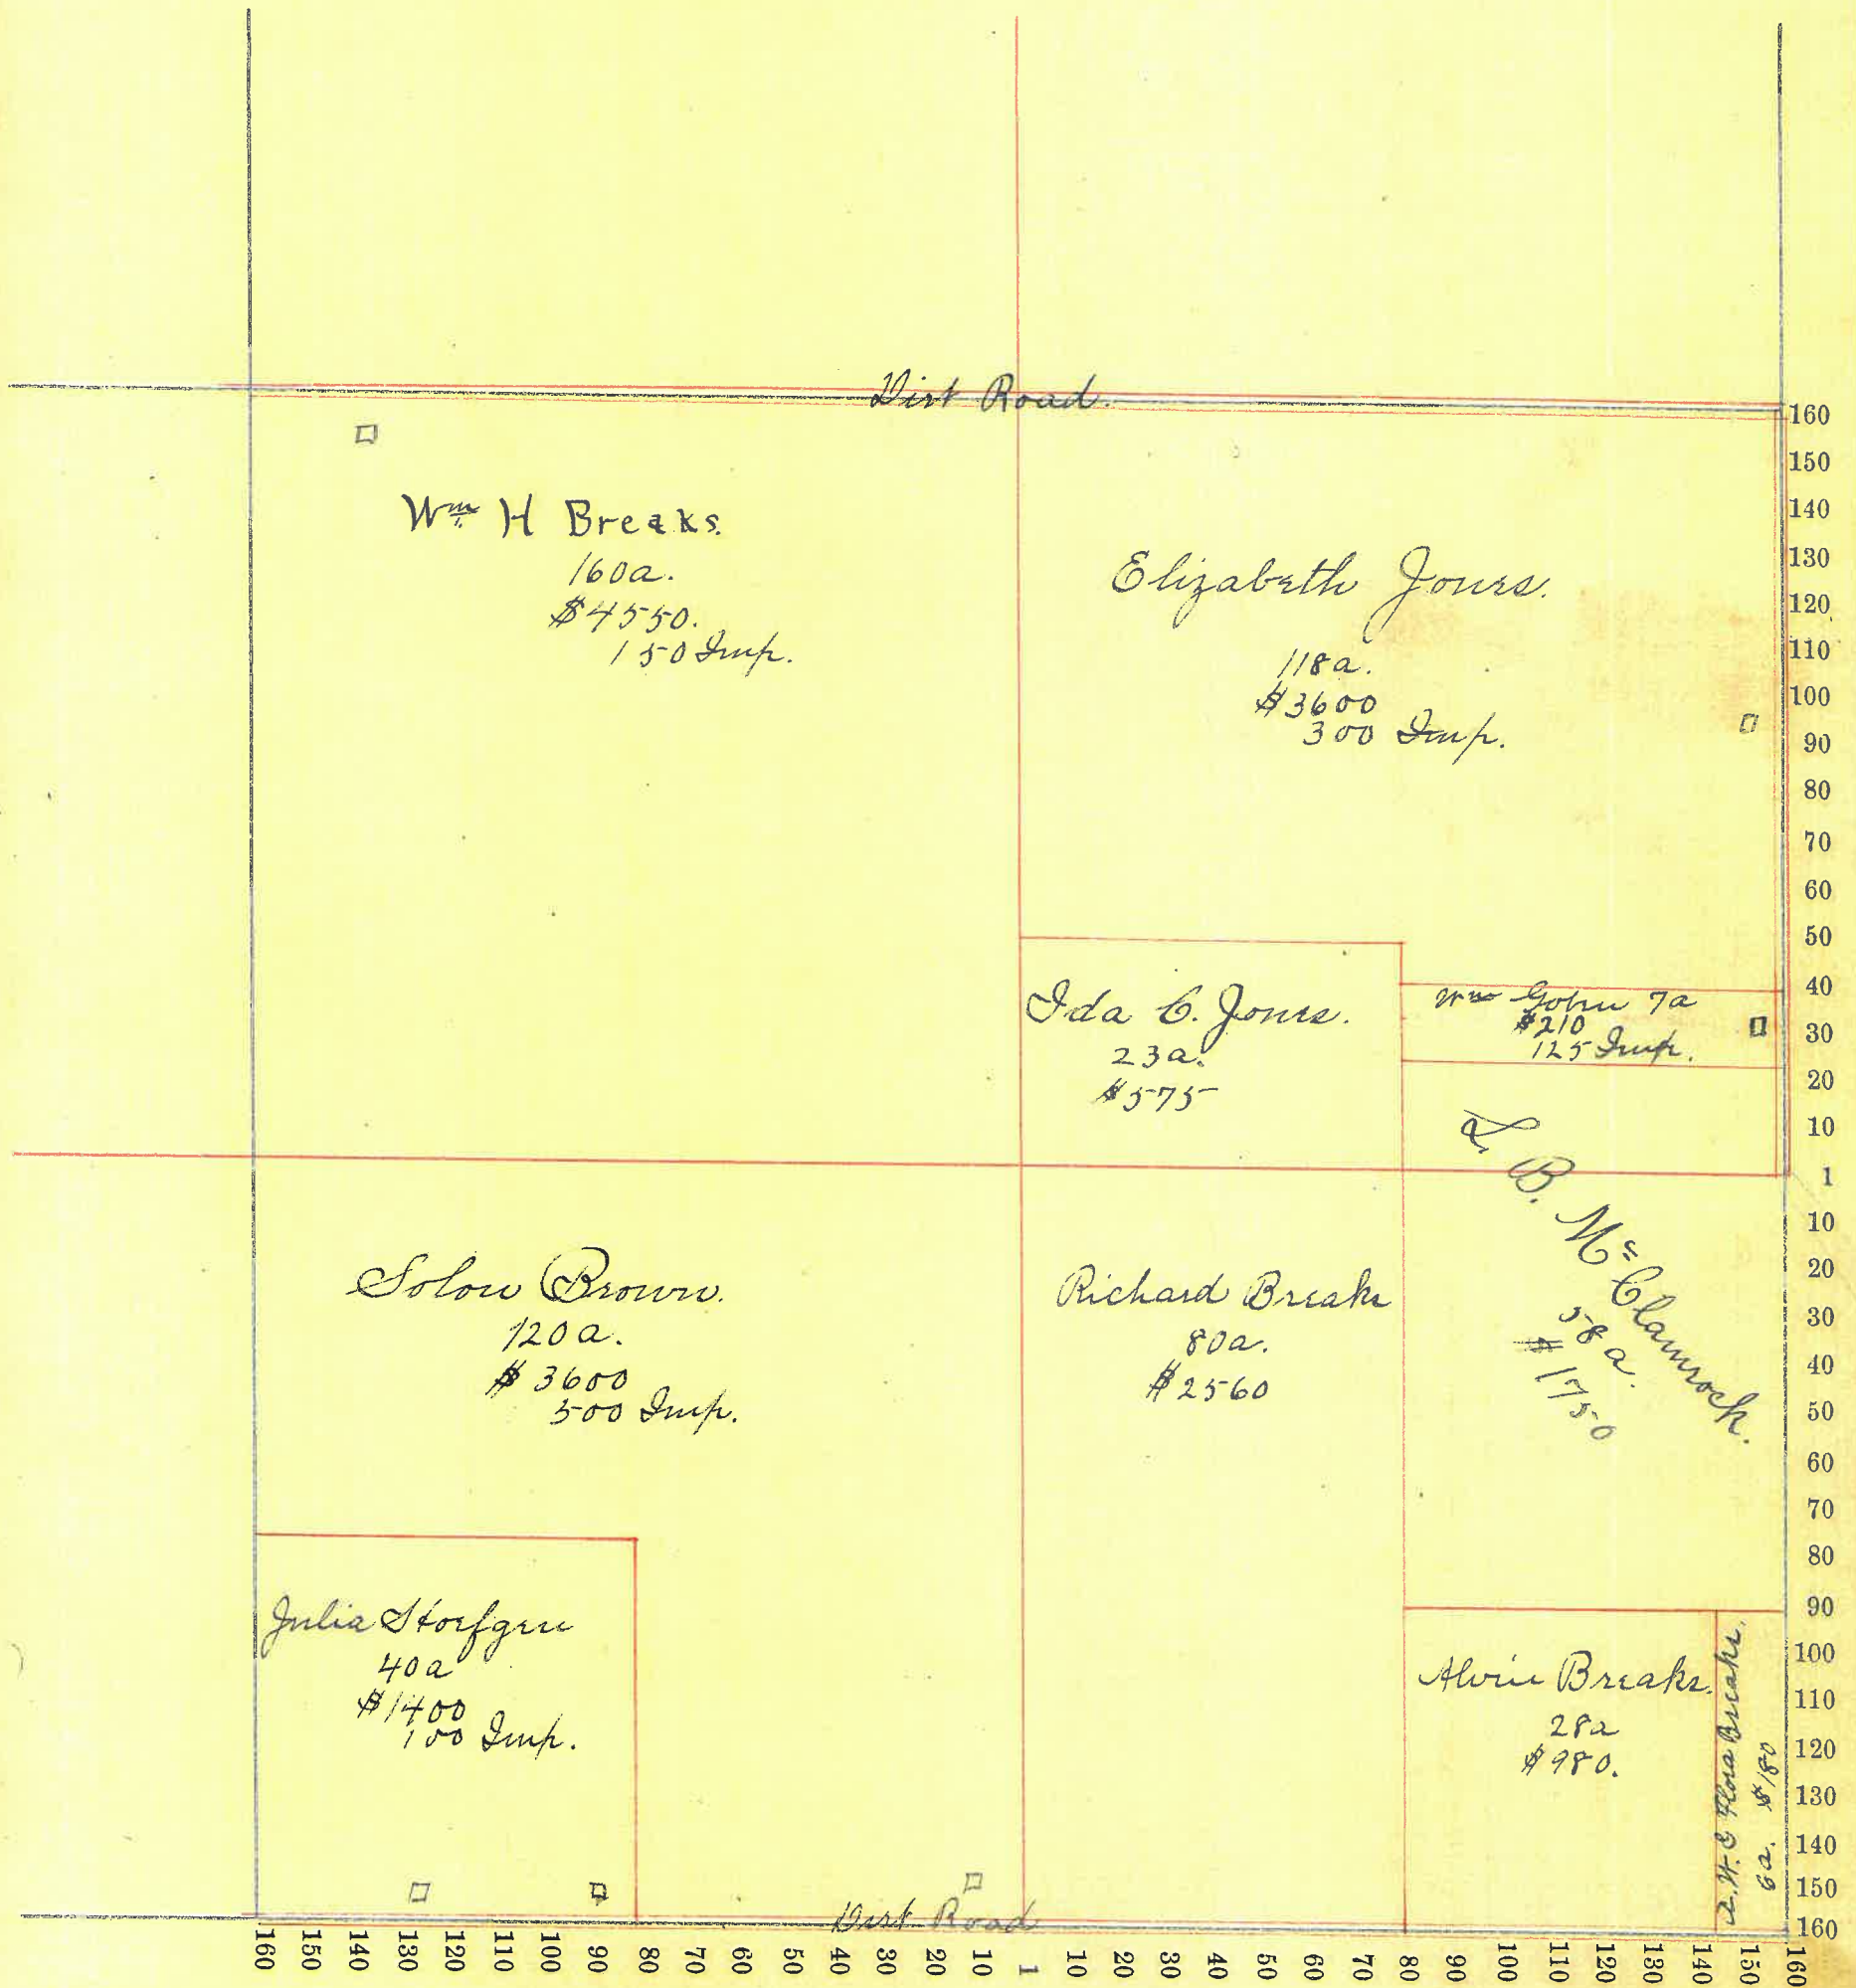 Dirt Road.
Wm H Breaks.
160a.
$4550.
150 Imp.
Elizabeth Jones.
118a.
$3600
300 Imp.
Ida C. Jones.
23a.
$575
Wm 7a
$210
125 Imp.
L B. McClamrock.
58a.
$1750
Solon Brown.
120a.
$3600
500 Imp.
Richard Breaks
80a.
$2560
Julia
40a
$1400
100 Imp.
Alvin Breaks.
28a
$980.
Flora Breaks.
6a. $180
Dirt Road
160
150
140
130
120
110
100
90
80
70
60
50
40
30
20
10
1
10
20
30
40
50
60
70
80
90
100
110
120
130
140
150
160
160 150 140 130 120 110 100 90 80 70 60 50 40 30 20 10 1 10 20 30 40 50 60 70 80 90 100 110 120 130 140 150 160